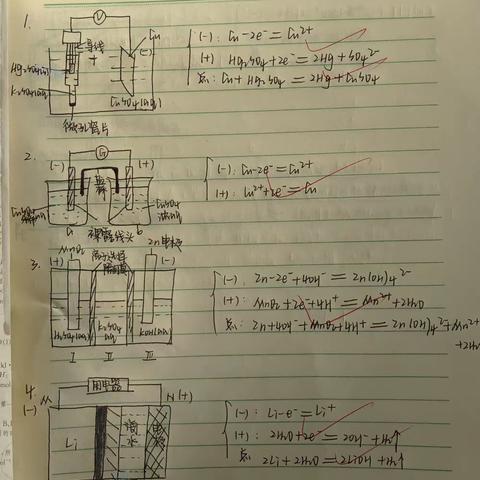 1.
V
Cu
导线
+
(-)
Hg2SO4(s)
K2SO4(aq)
CuSO4(aq)
微孔瓷片
(-): Cu-2e⁻=Cu²⁺
(+): Hg2SO4+2e⁻=2Hg+SO4²⁻
总: Cu+Hg2SO4=2Hg+CuSO4
2.
G
(-)
(+)
盐桥
CuSO4
CuSO4
a
b
裸露线头
(-): Cu-2e⁻=Cu²⁺
(+): Cu²⁺+2e⁻=Cu
3.
MnO2
Zn电极
(-)
H2SO4(aq)
K2SO4
aq
KOH(aq)
I
II
III
(-): Zn-2e⁻+4OH⁻=Zn(OH)4²⁻
(+): MnO2+2e⁻+4H⁺=Mn²⁺+2H2O
总: Zn+4OH⁻+MnO2+4H⁺=Zn(OH)4²⁻+Mn²⁺
+2H2O
4.
用电器
(-)
M
N(+)
Li
海水
(-): Li-e⁻=Li⁺
(+): 2H2O+2e⁻=2OH⁻+H2↑
总
2Li+2H2O=2LiOH+H2↑